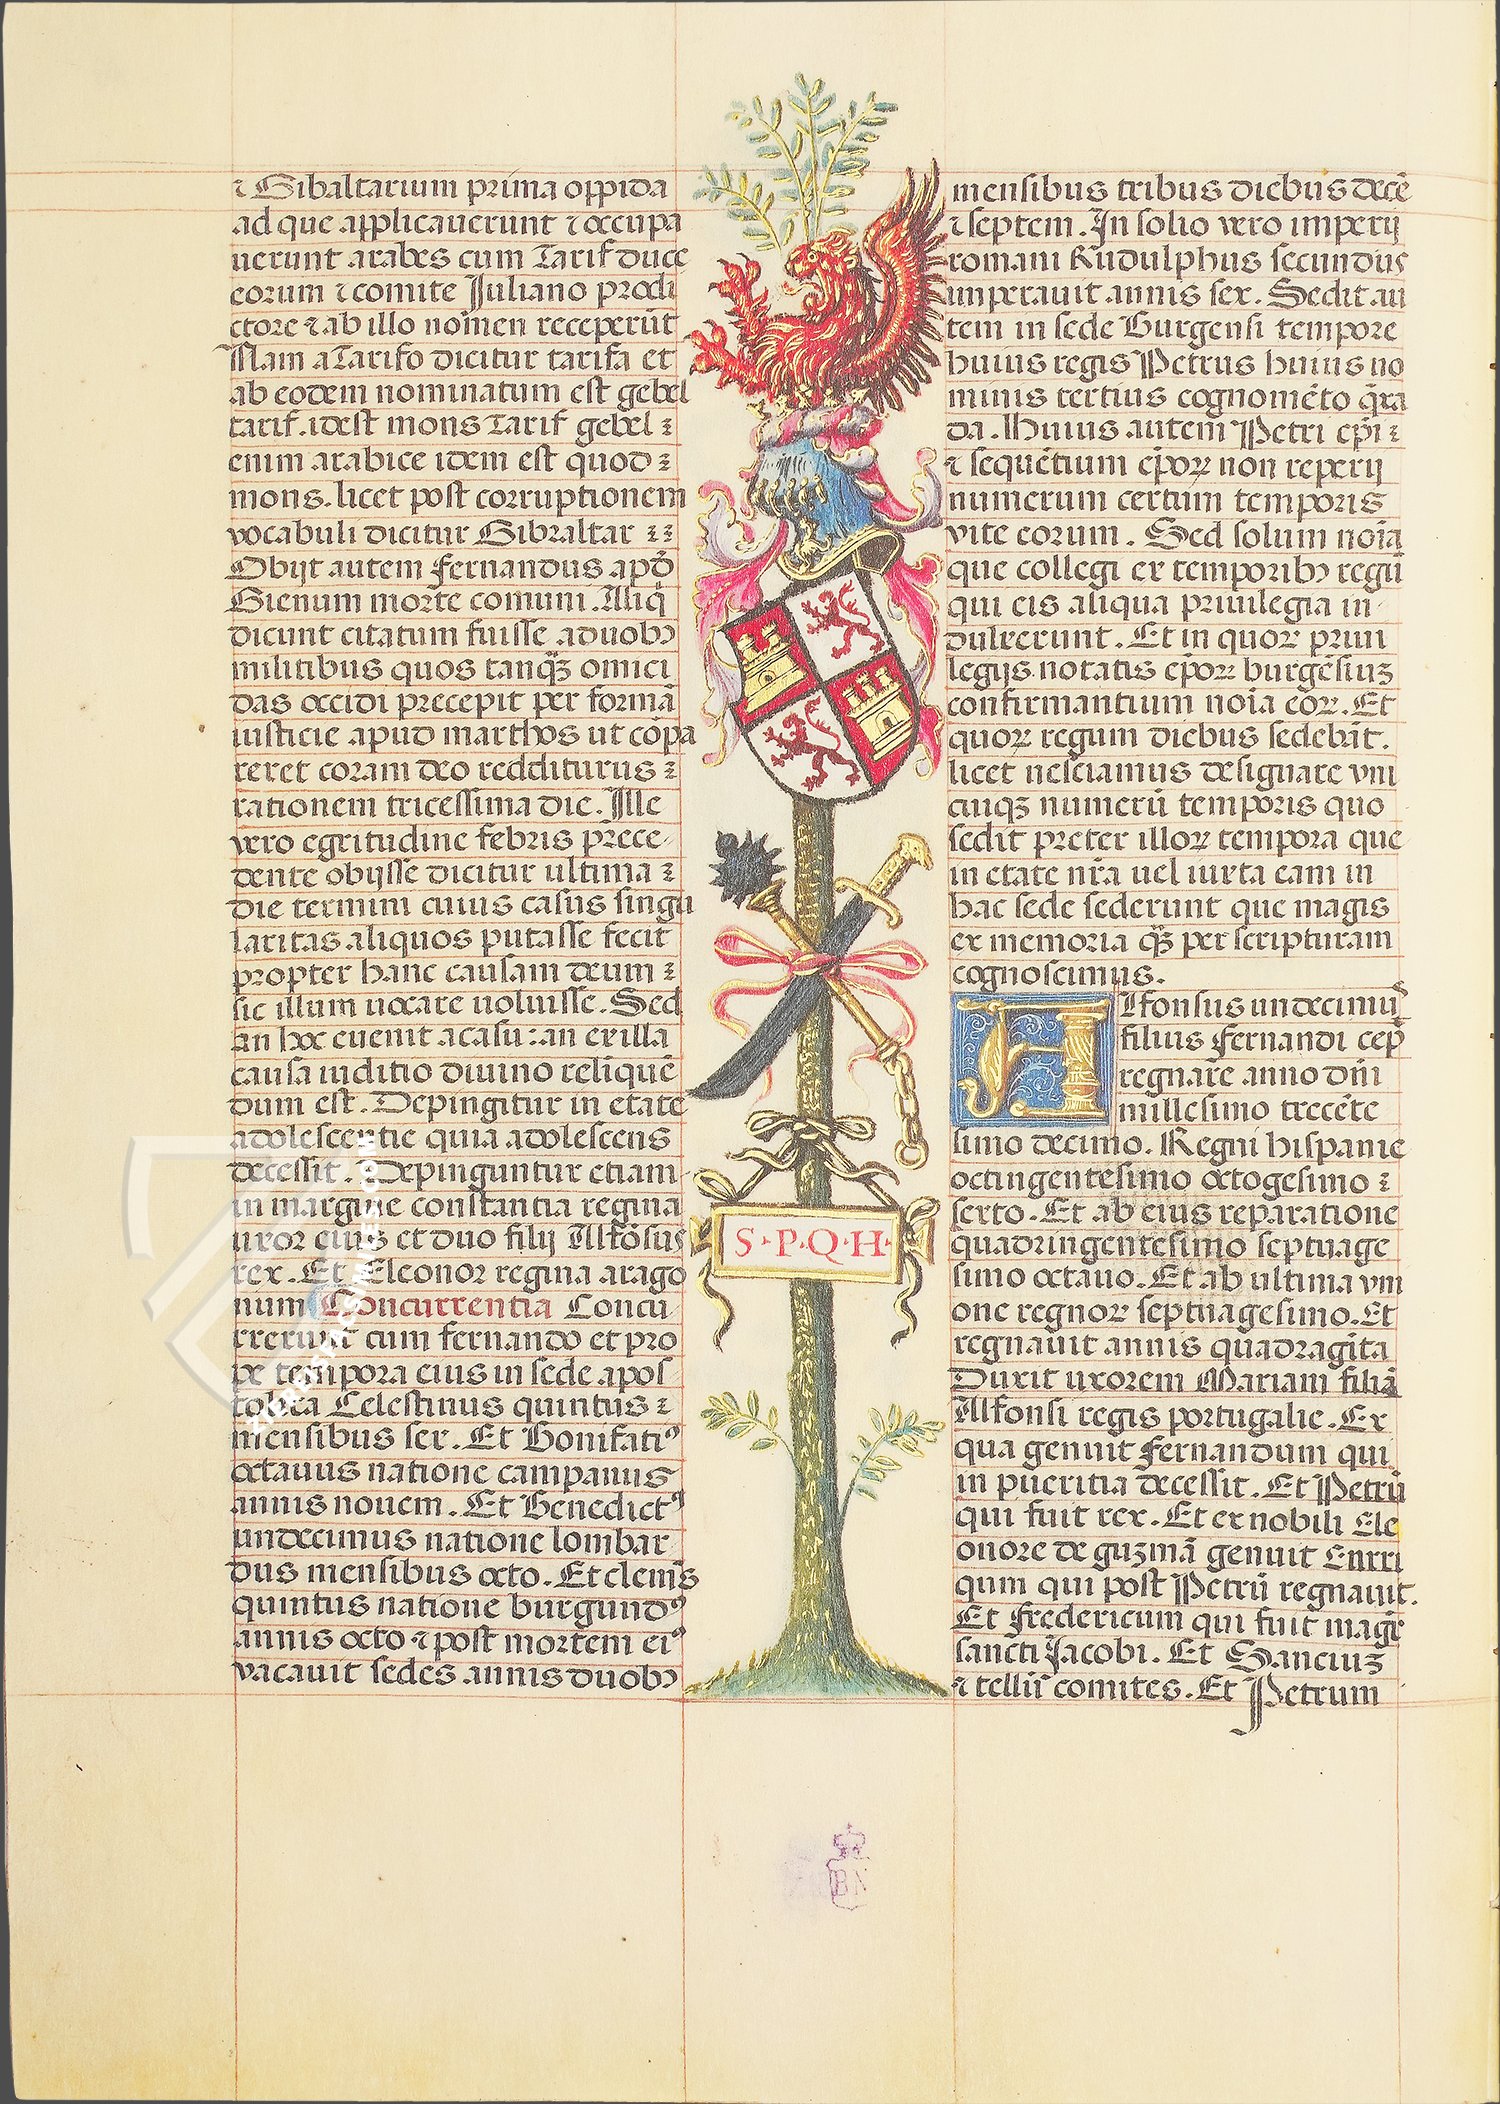 ⁊ Gibaltarium prima oppida
ad que applicauerunt ⁊ occupa
uerunt arabes cum Tarif duce
eorum ⁊ comite Juliano prodi
ctore ⁊ ab illo nomen receperūt
Nam a Tarifo dicitur tarifa et
ab eodem nominatum est gebel
tarif. idest mons Tarif gebel ⁊
enim arabice idem est quod ⁊
mons. licet post corruptionem
vocabuli dicitur Gibraltar ⁊⁊
Obijt autem Fernandus apd̄
Gienum morte comuni. Aliq̄
dicunt citatum fuisse a duobꝫ
militibus quos tanqꝫ omici
das occidi precepit per formā
iusticie apud marthos ut cōpa
reret coram deo redditurus ⁊
rationem tricessima die. Ille
vero egritudine febris prece
dente obijsse dicitur ultima ⁊
die termini cuius casus singu
laritas aliquos putasse fecit
propter hanc causam deum ⁊
sic illum uocare uoluisse. Sed
an hoc euenit a casu: an ex illa
causa iuditio diuino reliquē
dum est. Depingitur in etate
adolescentie quia adolescens
decessit. Depinguntur etiam
in margine constantia regina
uxor eius et duo filij Alfōsus
rex. Et Eleonor regina arago
num Concurrentia Concu
rrerunt cum fernando et pro
pe tempora eius in sede apos
tolica Celestinus quintus ⁊
mensibus sex. Et Bonifatiꝰ
octauus natione campanus
annis nouem. Et Benedictꝰ
undecimus natione lombar
dus mensibus octo. Et clemēs
quintus natione burgundꝰ
annis octo ⁊ post mortem eiꝰ
vacauit sedes annis duobꝫ
S·P·Q·H·
mensibus tribus diebus decē
⁊ septem. In solio vero imperij
romani Rudulphus secundus
imperauit annis sex. Sedit au
tem in sede Burgensi tempore
huius regis Petrus huius no
minis tertius cognomēto q̄xa
da. Huius autem Petri ep̄i ⁊
⁊ sequētium ep̄oꝝ non reperij
numerum certum temporis
vite eorum. Sed solum noīa
que collegi ex temporibꝫ regū
qui eis aliqua priuilegia in
dulxerunt. Et in quoꝝ priui
legijs notatis ep̄oꝝ burgēsiuꝫ
confirmantium noīa eoꝝ. Et
quoꝝ regum diebus sedebāt.
licet nesciamus designare vni
cuiqꝫ numerū temporis quo
sedit preter illoꝝ tempora que
in etate nr̄a uel iuxta eam in
hac sede sederunt que magis
ex memoria qꝫ per scripturam
cognoscimus.
Alfonsus undecimus
filius Fernandi cep̄
regnare anno dn̄i
millesimo trecēte
simo decimo. Regni hispanie
octingentesimo octogesimo ⁊
sexto. Et ab eius reparatione
quadringentesimo septuage
simo octauo. Et ab ultima vni
one regnoꝝ septuagesimo. Et
regnauit annis quadragīta
Duxit uxorem Mariam filiā
Alfonsi regis portugalie. Ex
qua genuit Fernandum qui
in pueritia decessit. Et Petrū
qui fuit rex. Et ex nobili Ele
onore de guzmā genuit Enrri
qum qui post Petrū regnauit.
Et Fredericum qui fuit magr̄
sancti Jacobi. Et Sanciuꝫ
⁊ telliū comites. Et Petrum
BN